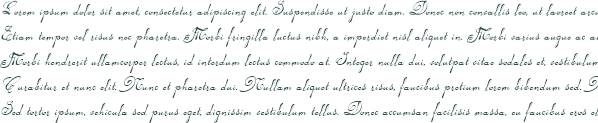 Lorem ipsum dolor sit amet, consectetur adipiscing elit. Suspendisse ut justo diam. Donec non convallis leo, ut laoreet arcu
Etiam tempor vel risus nec pharetra. Morbi fringilla luctus nibh, a imperdiet nisl aliquet in. Morbi varius augue ac
Morbi hendrerit ullamcorper lectus, id interdum lectus commodo at. Integer nulla dui, volutpat vitae sodales et, vestibulum
Curabitur et nunc elit. Nunc et pharetra dui. Nullam aliquet ultrices risus, faucibus pretium lorem bibendum sed.
Sed tortor ipsum, vehicula sed purus eget, dignissim vestibulum tellus. Donec accumsan facilisis massa, eu faucibus eros